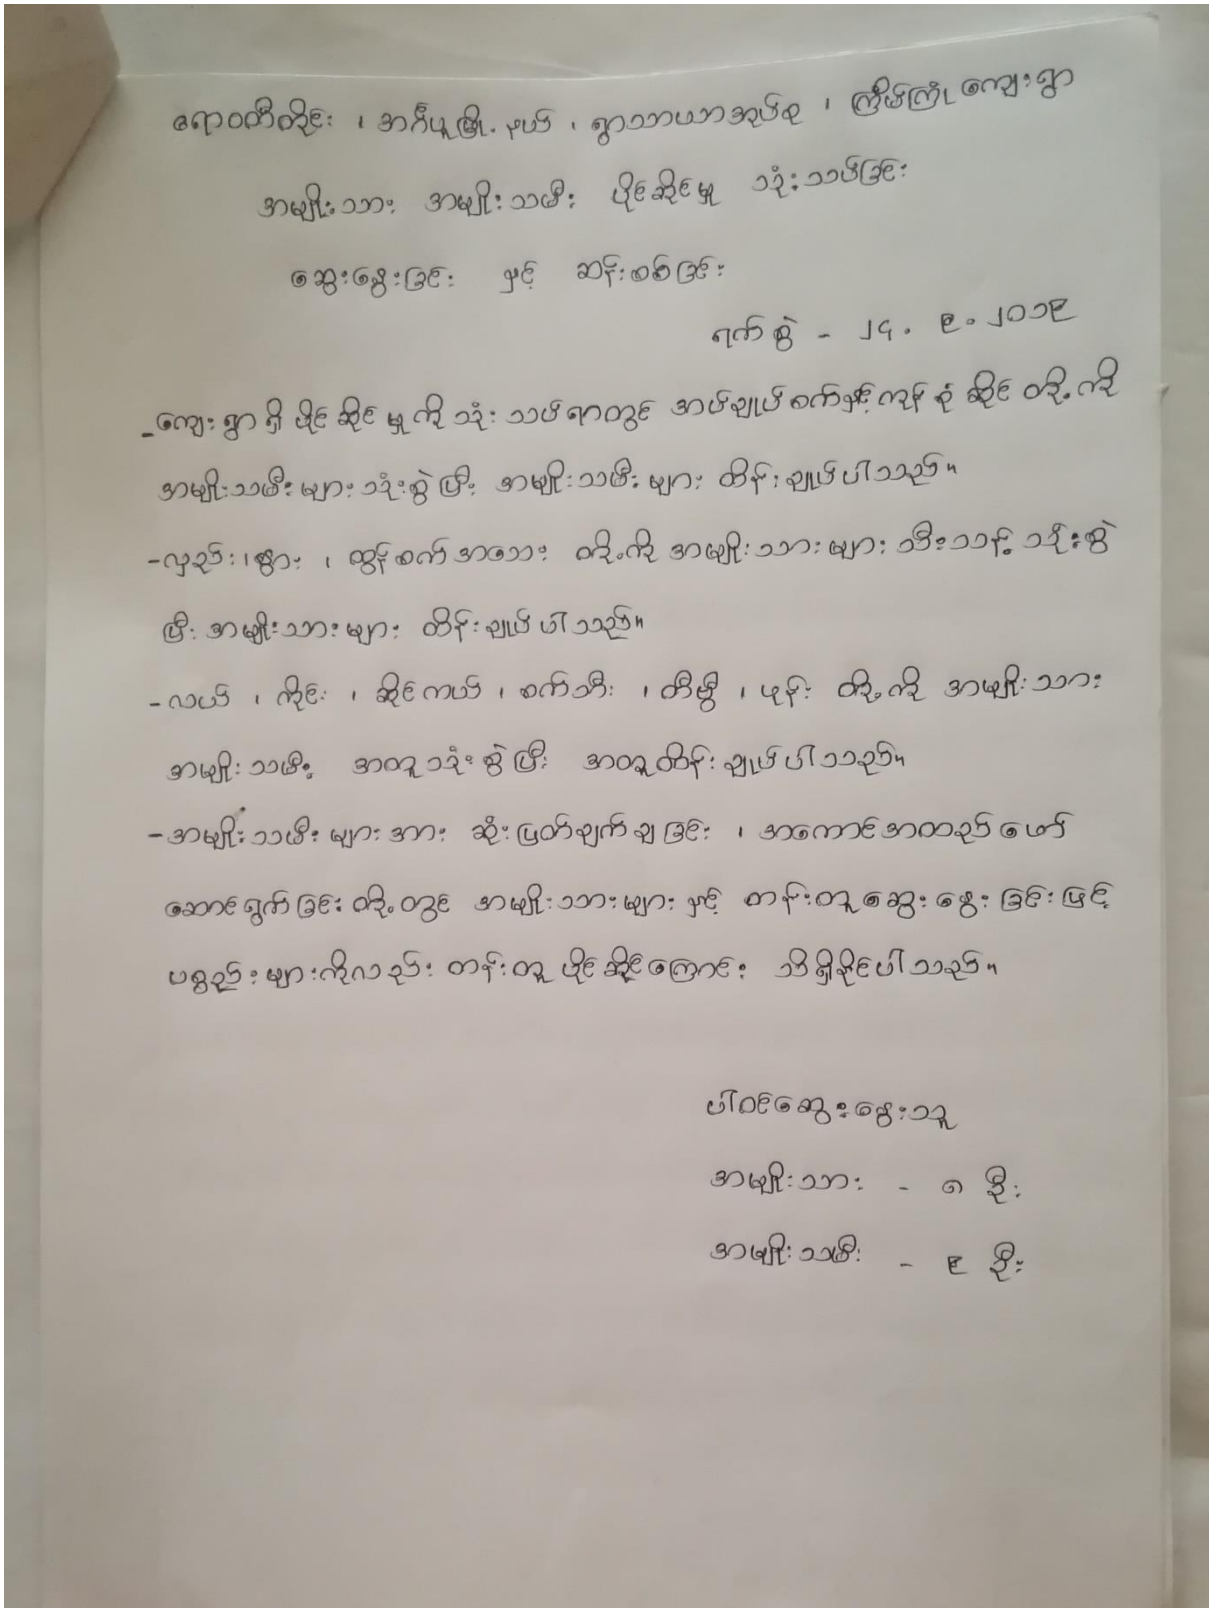 ဧရာဝတီတိုင်း ၊ အင်္ဂပူမြို့နယ် ၊ ရွာသာယာအုပ်စု ၊ ကြိမ်ကြုံ ကျေးရွာ
အမျိုးသား အမျိုးသမီး ပိုင်ဆိုင်မှု သုံးသပ်ခြင်း
ဆွေးနွေးခြင်း နှင့် ဆန်းစစ်ခြင်း
ရက်စွဲ - ၂၄.၉.၂၀၁၉
-ကျေးရွာရှိ ပိုင်ဆိုင်မှုကို သုံးသပ်ရာတွင် အပ်ချုပ်စက်နှင့်ကုန်စုံဆိုင် တို့ကို
အမျိုးသမီးများ သုံးစွဲပြီး အမျိုးသမီးများ ထိန်းချုပ်ပါသည်။
-လှည်း၊နွား ၊ ထွန်စက်အသေး တို့ကို အမျိုးသားများ သီးသန့် သုံးစွဲ
ပြီး အမျိုးသားများ ထိန်းချုပ်ပါသည်။
-လယ် ၊ ကိုင်း ၊ ဆိုင်ကယ် ၊ စက်ဘီး ၊ တီဗွီ ၊ ဖုန်း တို့ကို အမျိုးသား
အမျိုးသမီး အတူသုံးစွဲပြီး အတူထိန်းချုပ်ပါသည်။
-အမျိုးသမီးများအား ဆုံးဖြတ်ချက်ချခြင်း ၊ အကောင်အထည်ဖော်
ဆောင်ရွက်ခြင်းတို့တွင် အမျိုးသားများနှင့် တန်းတူဆွေးနွေးခြင်းဖြင့်
ပစ္စည်းများကိုလည်း တန်းတူ ပိုင်ဆိုင်ကြောင်း သိရှိနိုင်ပါသည်။
ပါဝင်ဆွေးနွေးသူ
အမျိုးသား - ၈ ဦး
အမျိုးသမီး - ၉ ဦး